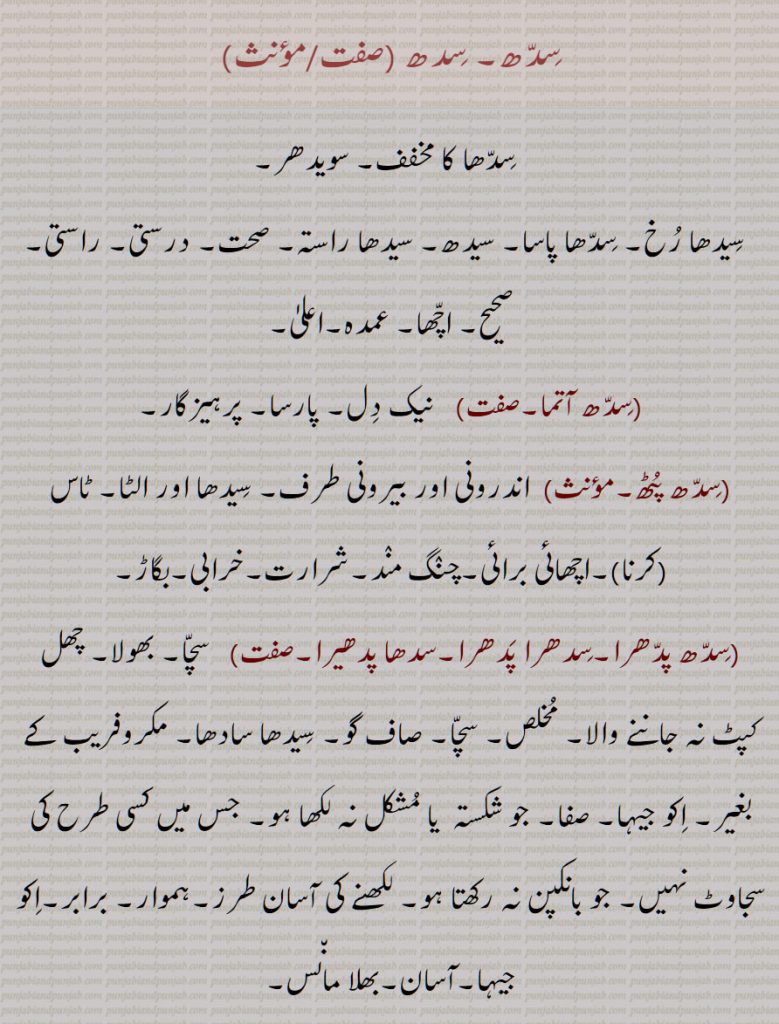 سِدّھ۔ سِدھ (صفت/مؤنث)
سِدّھا کا مخفف۔ سویدھر۔
سِیدھا رُخ۔ سِدّھا پاسا۔ سیدھ۔ سیدھا راستہ۔ صحت۔ درستی۔ راستی۔
صحیح۔ اچّھا۔ عمدہ۔اعلیٰ۔
(سِدّھ آتما۔صفت) نیک دِل۔ پارسا۔ پرہیزگار۔
(سِدّھ پُٹھ۔مؤنث) اندرونی اور بیرونی طرف۔ سِیدھا اور الٹا۔ ٹاس
(کرنا)۔اچھائی برائی۔چنْگ منْد۔شرارت۔خرابی۔بگاڑ۔
(سِدّھ پدّھرا۔سِدھرا پَدھرا۔سدھا پدھیرا۔صفت) سچّا۔ بھولا۔ چھل
کپٹ نہ جاننے والا۔ مُخلص۔ سچّا۔ صاف گو۔ سِیدھا سادھا۔ مکروفریب کے
بغیر۔ اِکو جیہا۔ صفا۔ جو شکستہ یا مُشکل نہ لکھا ہو۔ جس میں کسی طرح کی
سجاوٹ نہیں۔ جو بانکپن نہ رکھتا ہو۔ لکھنے کی آسان طرز۔ہموار۔ برابر۔اِکو
جیہا۔آسان۔بھلا مانْس۔